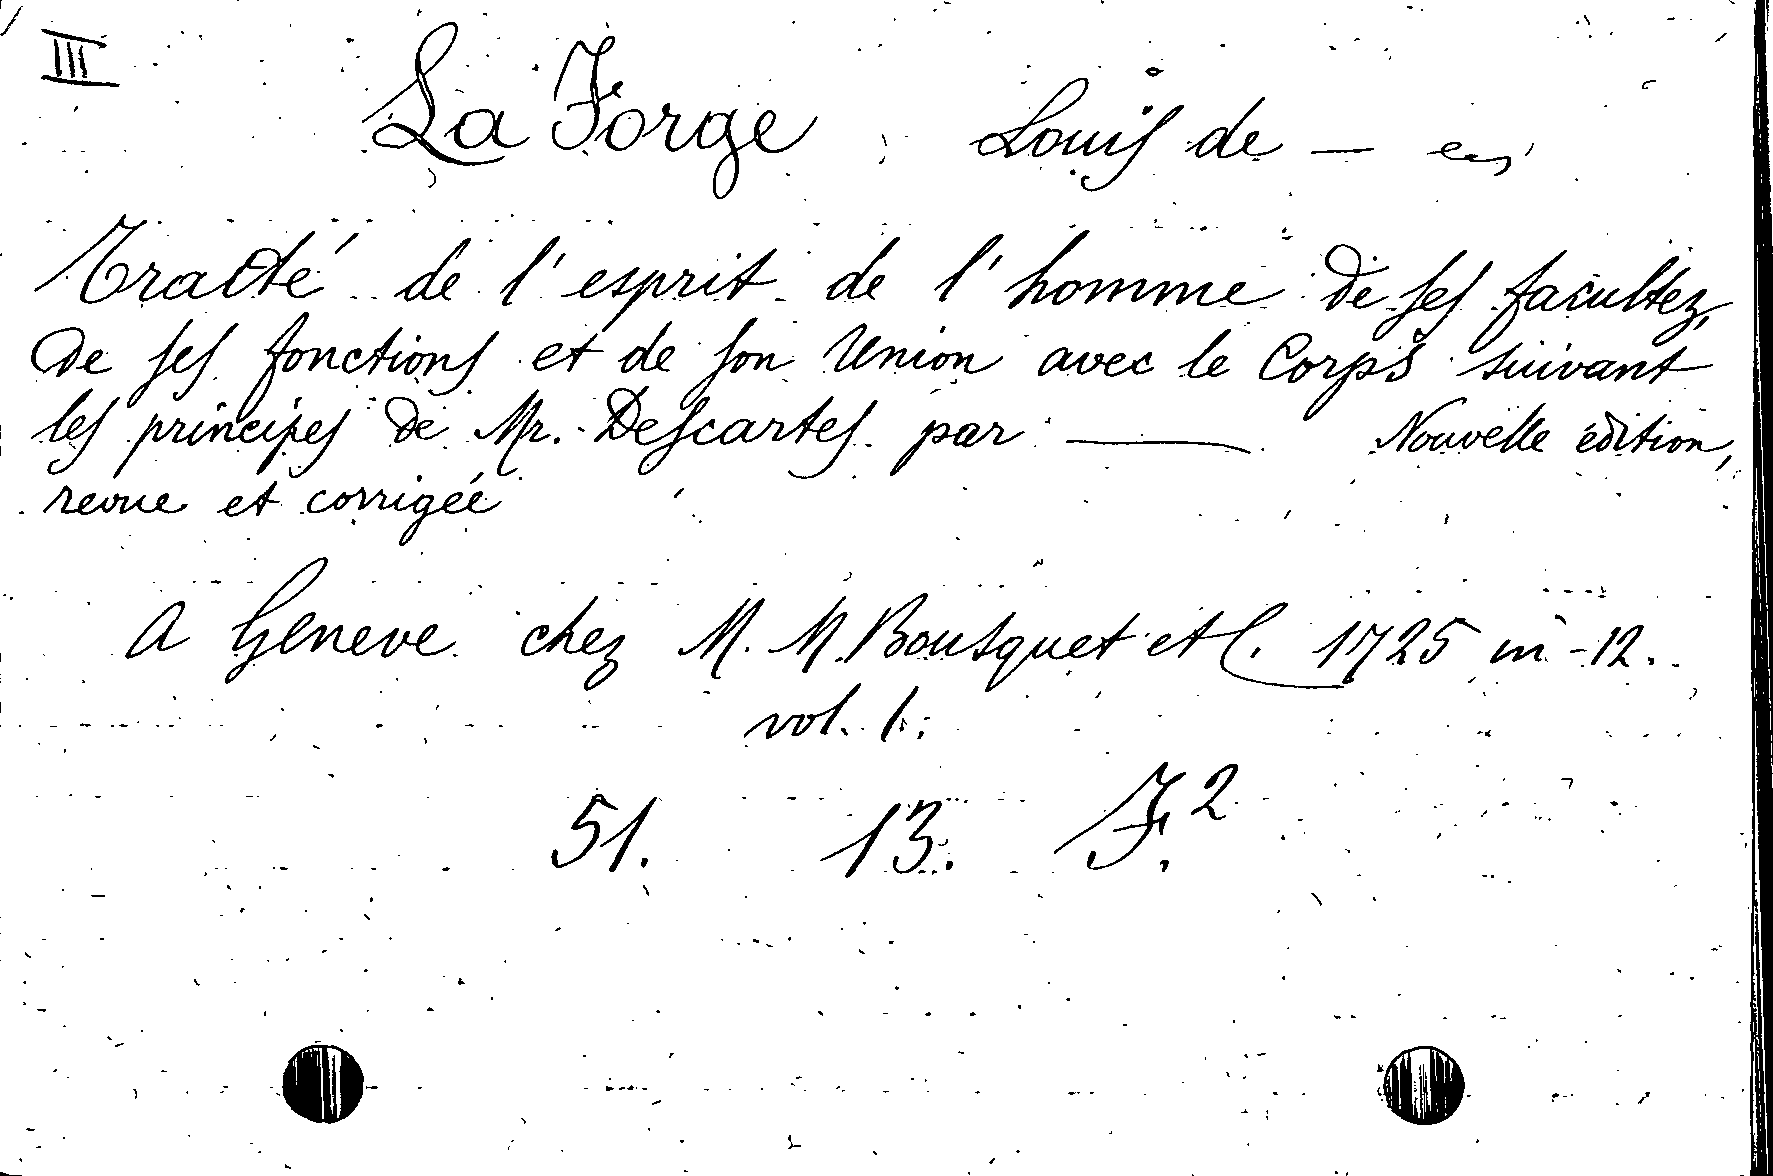 III
La Forge, Louis de —
Traité de l'esprit de l'homme de ses facultez,
de ses fonctions et de son Union avec le Corps suivant
les principes de Mr. Descartes par — Nouvelle édition,
revue et corrigée
A Geneve chez M. M. Bousquet et C. 1725 in-12.
vol. 1.
51. 13. F.2